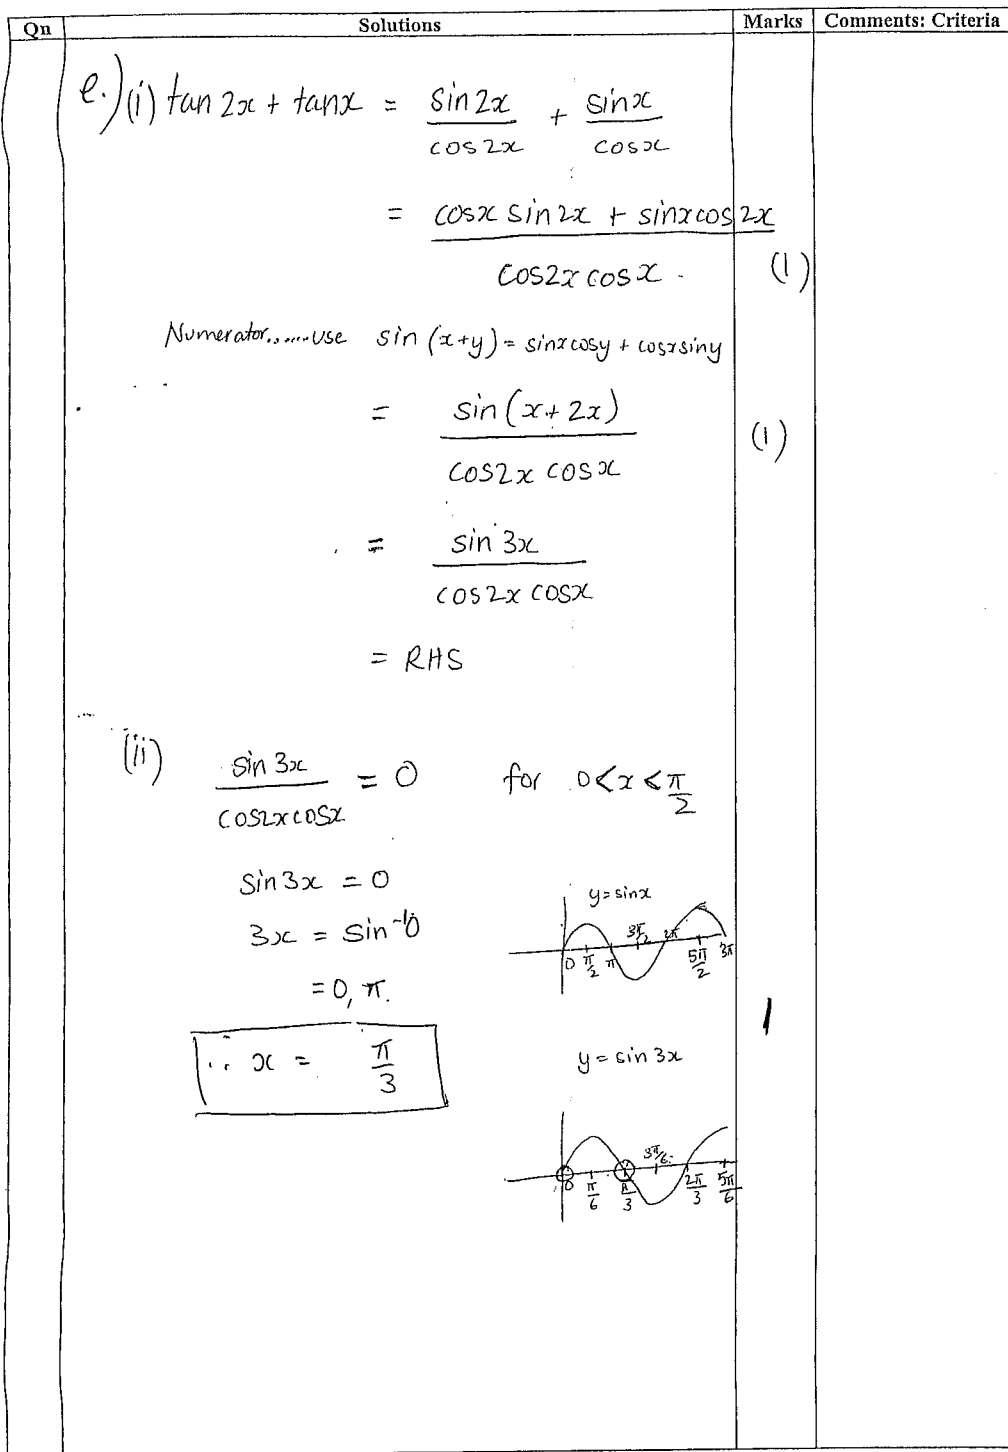 Qn Solutions Marks Comments: Criteria
e.) (i) tan 2x + tanx = sin2x/cos2x + sinx/cosx
= cosx sin2x + sinxcos2x / cos2x cosx . (1)
Numerator.......use sin (x+y) = sinxcosy + cosxsiny
= sin(x+2x) / cos2x cosx (1)
= sin 3x / cos2x cosx
= RHS
(ii) sin 3x / cos2xcosx = 0 for 0<x<π/2
sin3x = 0
3x = sin⁻¹0
= 0, π.
∴ x = π/3
1
y=sinx
0 π/2 π 3π/2 2π 5π/2 3π
y = sin 3x
0 π/6 π/3 3π/6 2π/3 5π/6